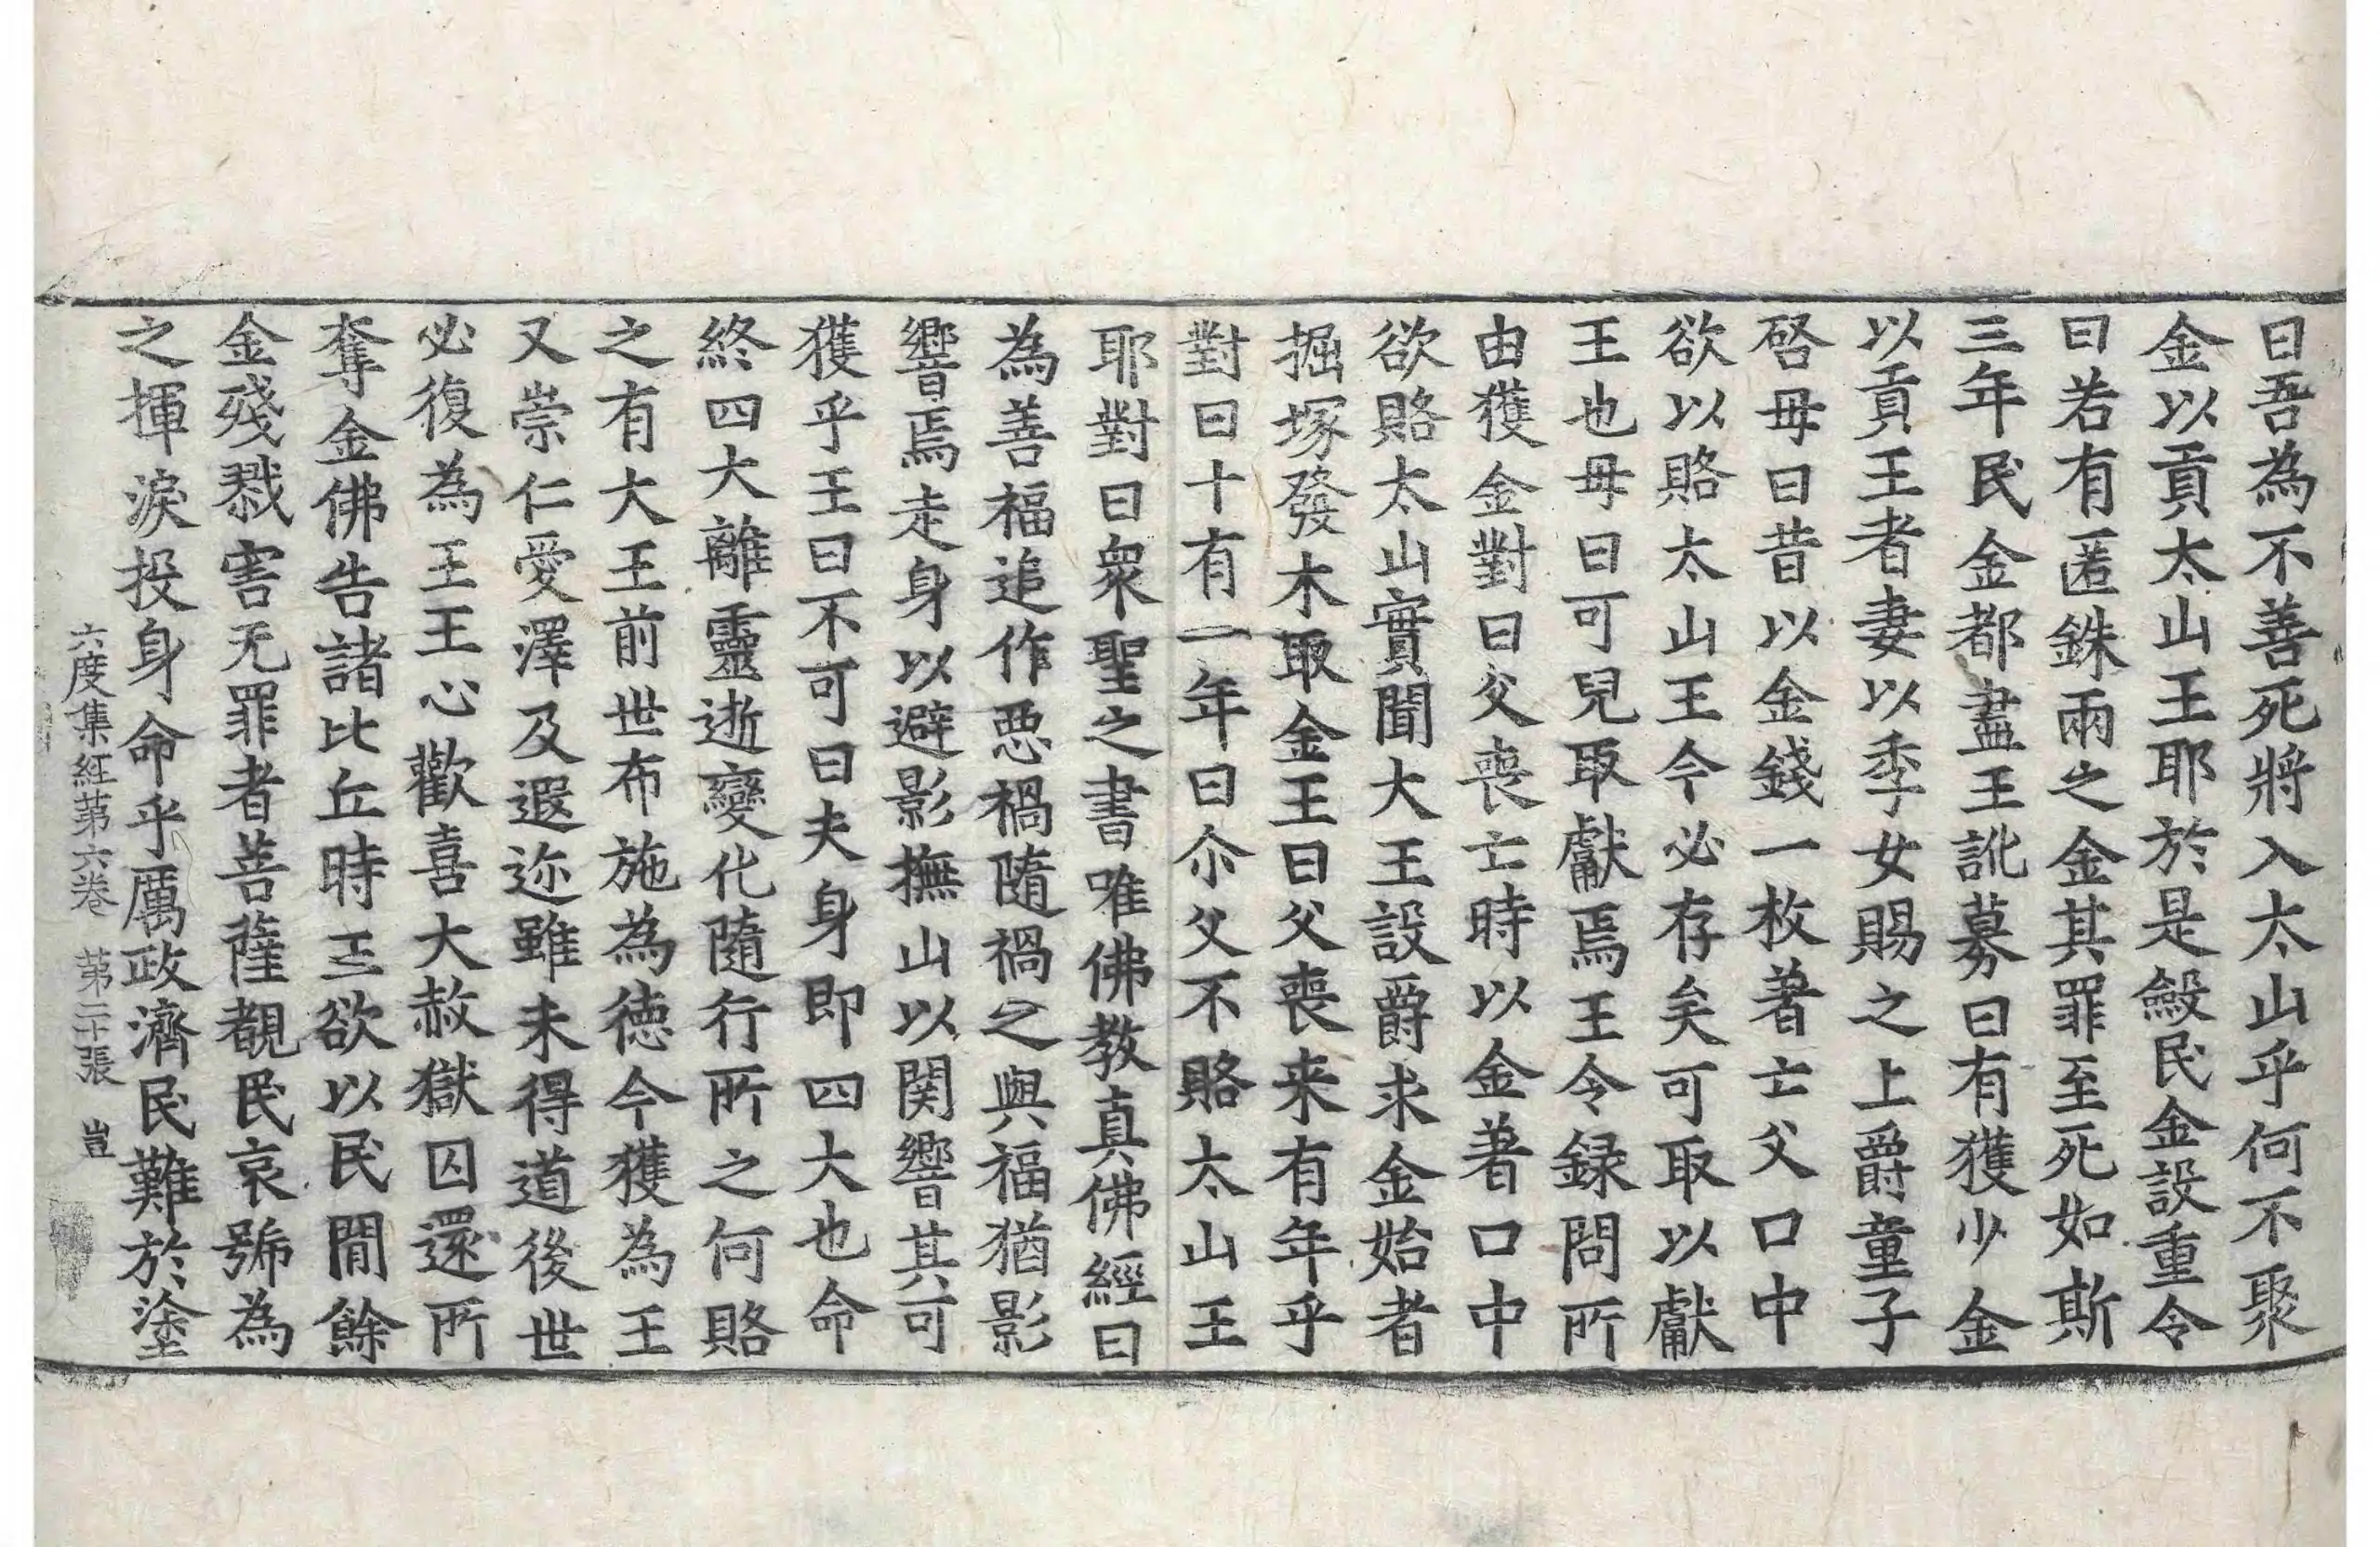 曰吾為不善死將入太山乎何不聚
金以貢太山王耶於是斂民金設重令
曰若有匿銖兩之金其罪至死如斯
三年民金都盡王訛募曰有獲少金
以貢王者妻以季女賜之上爵童子
啓母曰昔以金錢一枚著亡父口中
欲以賂太山王今必存矣可取以獻
王也母曰可兒取獻焉王令録問所
由獲金對曰父喪亡時以金著口中
欲賂太山實聞大王設爵求金始者
掘塚發木取金王曰父喪来有年乎
對曰十有一年曰尒父不賂太山王
耶對曰衆聖之書唯佛教真佛經曰
為善福追作惡禍隨禍之與福猶影
響焉走身以避影撫山以関響其可
獲乎王曰不可曰夫身即四大也命
終四大離靈逝變化隨行所之何賂
之有大王前世布施為徳今獲為王
又崇仁愛澤及遐迩雖未得道後世
必復為王王心歡喜大赦獄囚還所
奪金佛告諸比丘時王欲以民閒餘
金殘戮害无罪者菩薩覩民哀號為
之揮淚投身命乎厲政濟民難於塗
六度集経第六卷 第二十張 豈